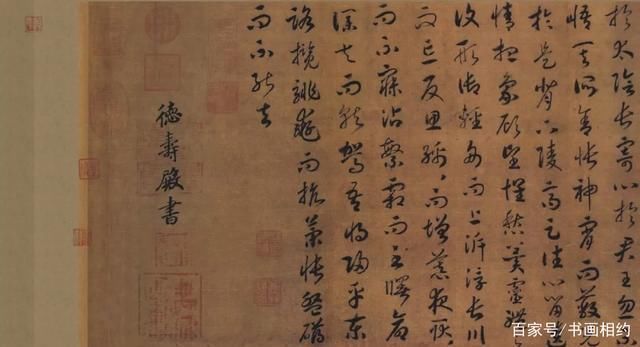 於太陰長寄心於君王忽不
悟其所舍悵神宵而蔽光
於是背下陵高足往心留遺
情想象顧望懷愁冀靈體
復形御輕舟而上泝浮長川
而忘反思綿〻而增慕夜耿〻
而不寐沾繁霜而至曙命
僕夫而就駕吾將歸乎東
路攬騑轡而抗策悵盤桓
而不能去
德壽殿書
百家号/书画相约